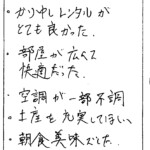 ・かりゆしレンタルが
とても良かった.
・部屋が広くて
快適だった.
・空調が一部不調
・土産を充実してほしい
・朝食美味でした.